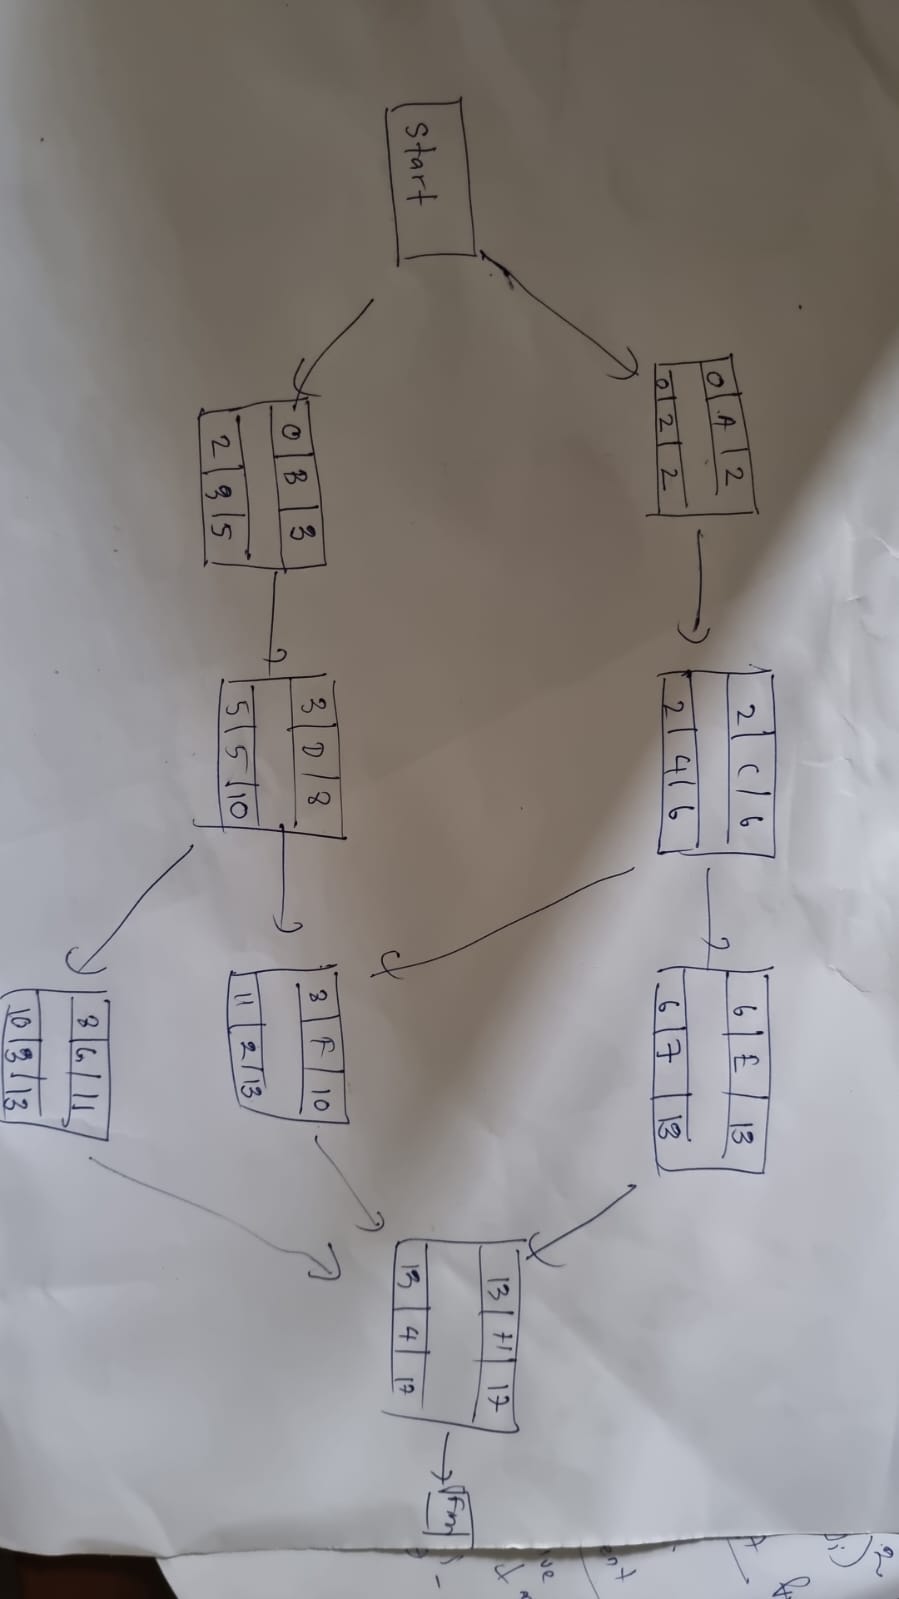 Start
0 | A | 2
0 | 2 | 2
0 | B | 3
2 | 3 | 5
2 | C | 6
2 | 4 | 6
3 | D | 8
5 | 5 | 10
6 | E | 13
6 | 7 | 13
8 | F | 10
11 | 2 | 13
8 | G | 11
10 | 3 | 13
13 | H | 17
13 | 4 | 17